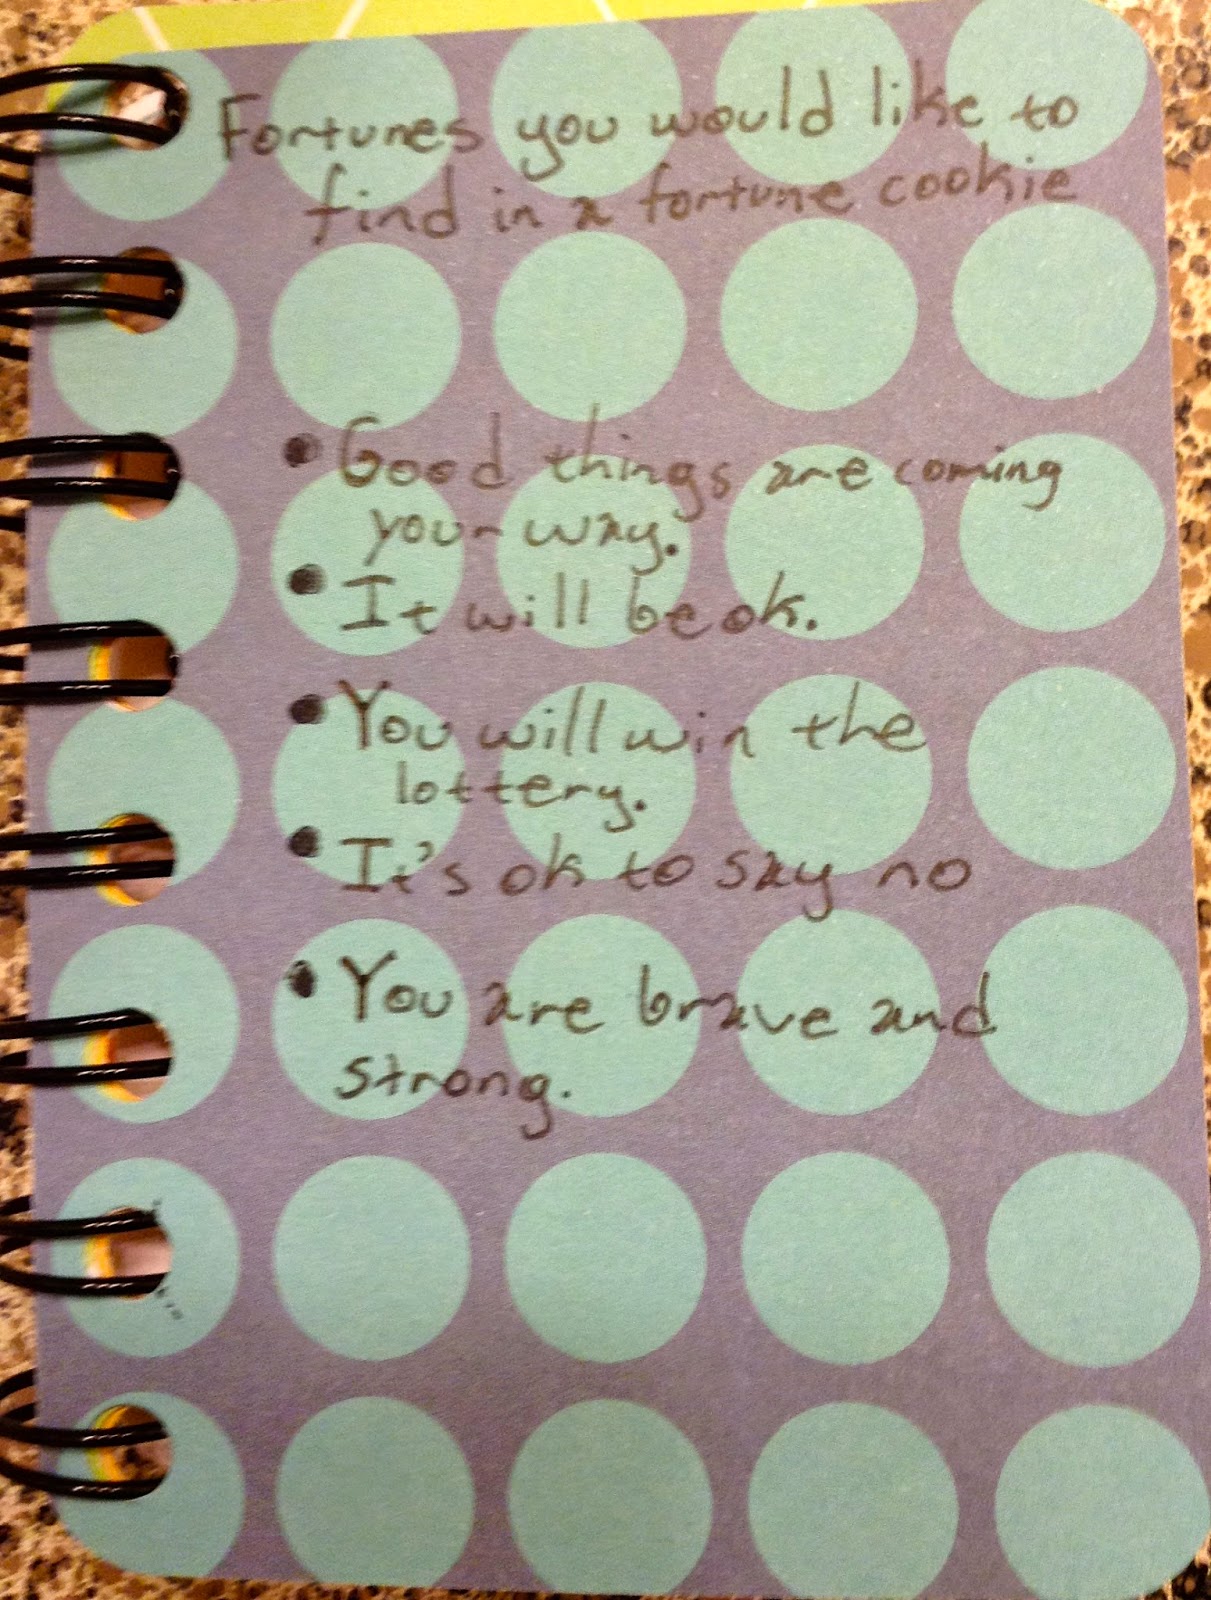 Fortunes you would like to
find in a fortune cookie
• Good things are coming
your way.
• It will be ok.
• You will win the
lottery.
• It's ok to say no
• You are brave and
strong.